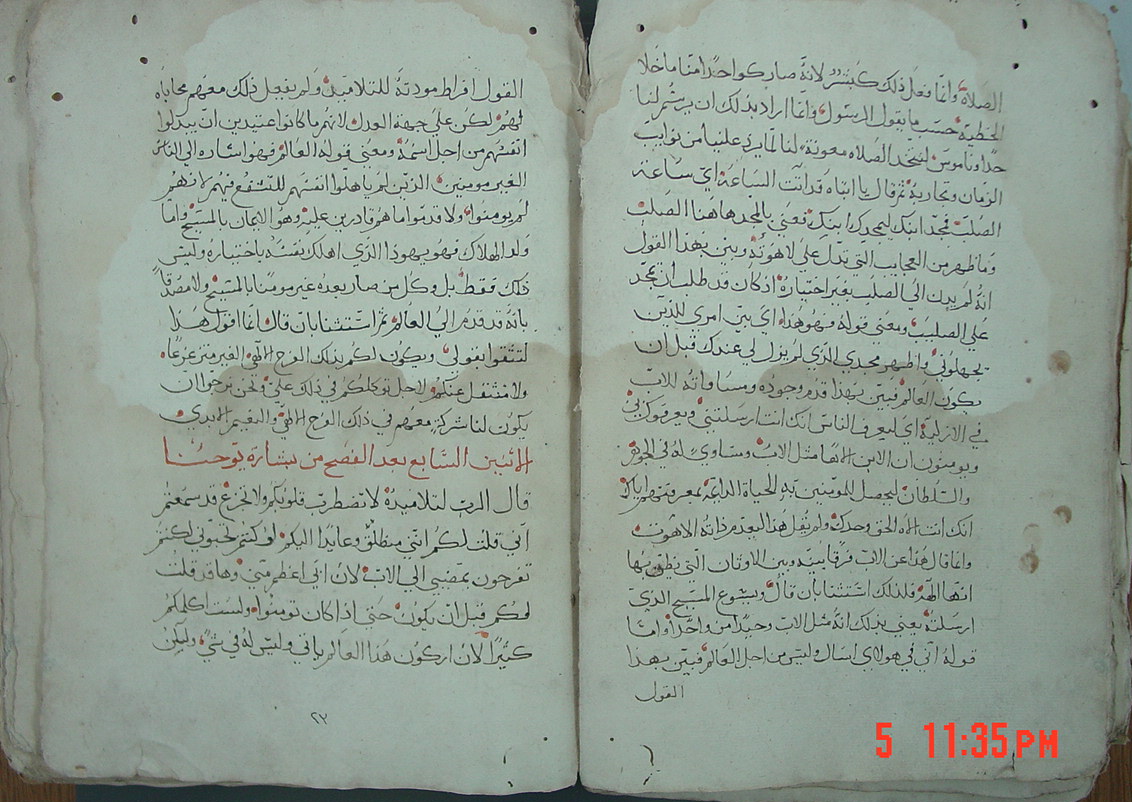 الصلاة وانما فعل ذلك كبشر لانه صار كواحدا منا ما خلا
الخطية حسب ما يقول الرسول وانما اراد بذلك ان يرسم لنا
حدا وناموس لنتخد الصلاه معونة لنا لما يرد علينا من نوايب
الزمان وتجاربه ثم قال يا ابتاه قد اتت الساعة اي ساعة
الصلب فمجد ابنك ليمجدك ابنك يعني بالمجد هاهنا الصلب
وما ظهر من العجايب التي تدل علي لاهوته وبين بهذا القول
انه لم يدن الي الصلب بغير اختياره اذ كان قد طلب ان يمجد
علي الصليب ومعني قوله فهو هذا اي بين امري للذين
يجهلوني واظهر مجدي الذي لم يزل لي عندك قبل ان
يكون العالم فبين بهذا قدم وجوده ومساواته للاب
في الازلية اي ليعرف الناس انك انت ارسلتني ويعرفوك بي
ويومنون ان الابن الاها مثل الاب ومساوي له في الجوهر
والسلطان ليحصل المومنين به الحياة الدايمة بمعرفتهم اياك
انك انت الاه الحق وحدك ولم يقل هذا ليعدم ذاته الاهوت
وانما قال هذا عن الاب فرقا بينه وبين الاوثان التي يظن بها
انها الهة فلذلك استثنا بان قال ويسوع المسيح الذي
ارسلته يعني بذلك انه مثل الاب وحيدا من واحدا واما
قوله اني في هولاي اسال وليس من اجل العالم فبين بهذا
القول
القول افراط مودته للتلاميذ ولم يفعل ذلك معهم محاباه
لهم لكن علي جهة العدل لانهم ما كانوا عتيدين ان يبدلوا
انفسهم من اجل اسمه ومعني قوله العالم فهو اشاره الي الناس
الغير مومنين الذين لم ياهلوا انفسهم للتشفع فيهم لانهم
لم يومنوا ولا قدموا ما هم قادرين عليه وهو الايمان بالمسيح واما
ولد الهلاك فهو يهوذا الذي اهلك نفسه باختياره وليس
ذلك فقط بل وكل من صار بعده غير مومنا بالمسيح ولا مصدقا
بانه قد قدم الي العالم ثم استثنا بان قال انما اقول هذا
لتثقوا بقولي ويكون لكم بذلك الفرح الالهي الغير متزعزعا
ولا منتقل عنكم ولاجل توكلكم في ذلك علي ونحن نرجوا ان
يكون لنا شركة معهم في ذلك الفرح الالهي والنعيم الابدي
الاثنين السابع بعد الفصح من بشارة يوحنا
قال الرب لتلاميذه لا تضطرب قلوبكم ولا تجزع قد سمعتم
اني قلت لكم انني منطلق وعايدا اليكم لو كنتم تحبوني لكنتم
تفرحون بمضيي الي الاب لان ابي اعظم مني وها قد قلت
لكم قبل ان يكون حتي اذا كان تومنوا ولست اكلمكم
كثيرا لان اركون هذا العالم ياتي وليس له في شي وليكن
٢٣
5 11:35PM